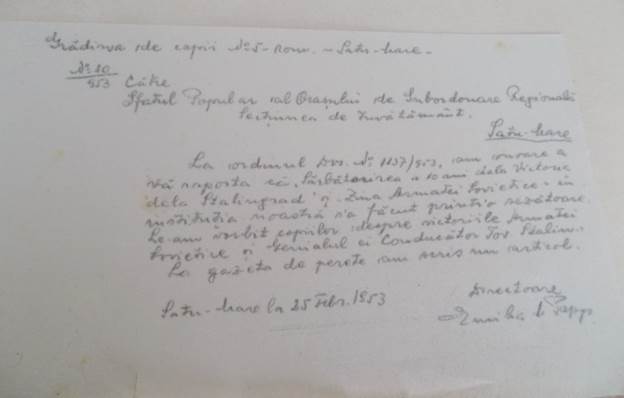 Grădinița de copii No 5 - rom. - Satu-Mare -
No 20
953
Către
Sfatul Popular al Orașului de Subordonare Regională
Secțiunea de Învățământ.
Satu-Mare
La ordinul Dvs. No 1137/953, am onoare a
vă raporta că, Sărbătorirea a 10 ani dela Victoria
dela Stalingrad și Ziua Armatei Sovietice - în
instituția noastră s'a făcut printr'o șezătoare
Le-am vorbit copiilor despre victoriile Armatei
Sovietice și Genialul ei Conducător Ios. Stalin.
La gazeta de perete am scris un articol.
Satu-Mare la 25 Febr. 1953
Directoare
Papp